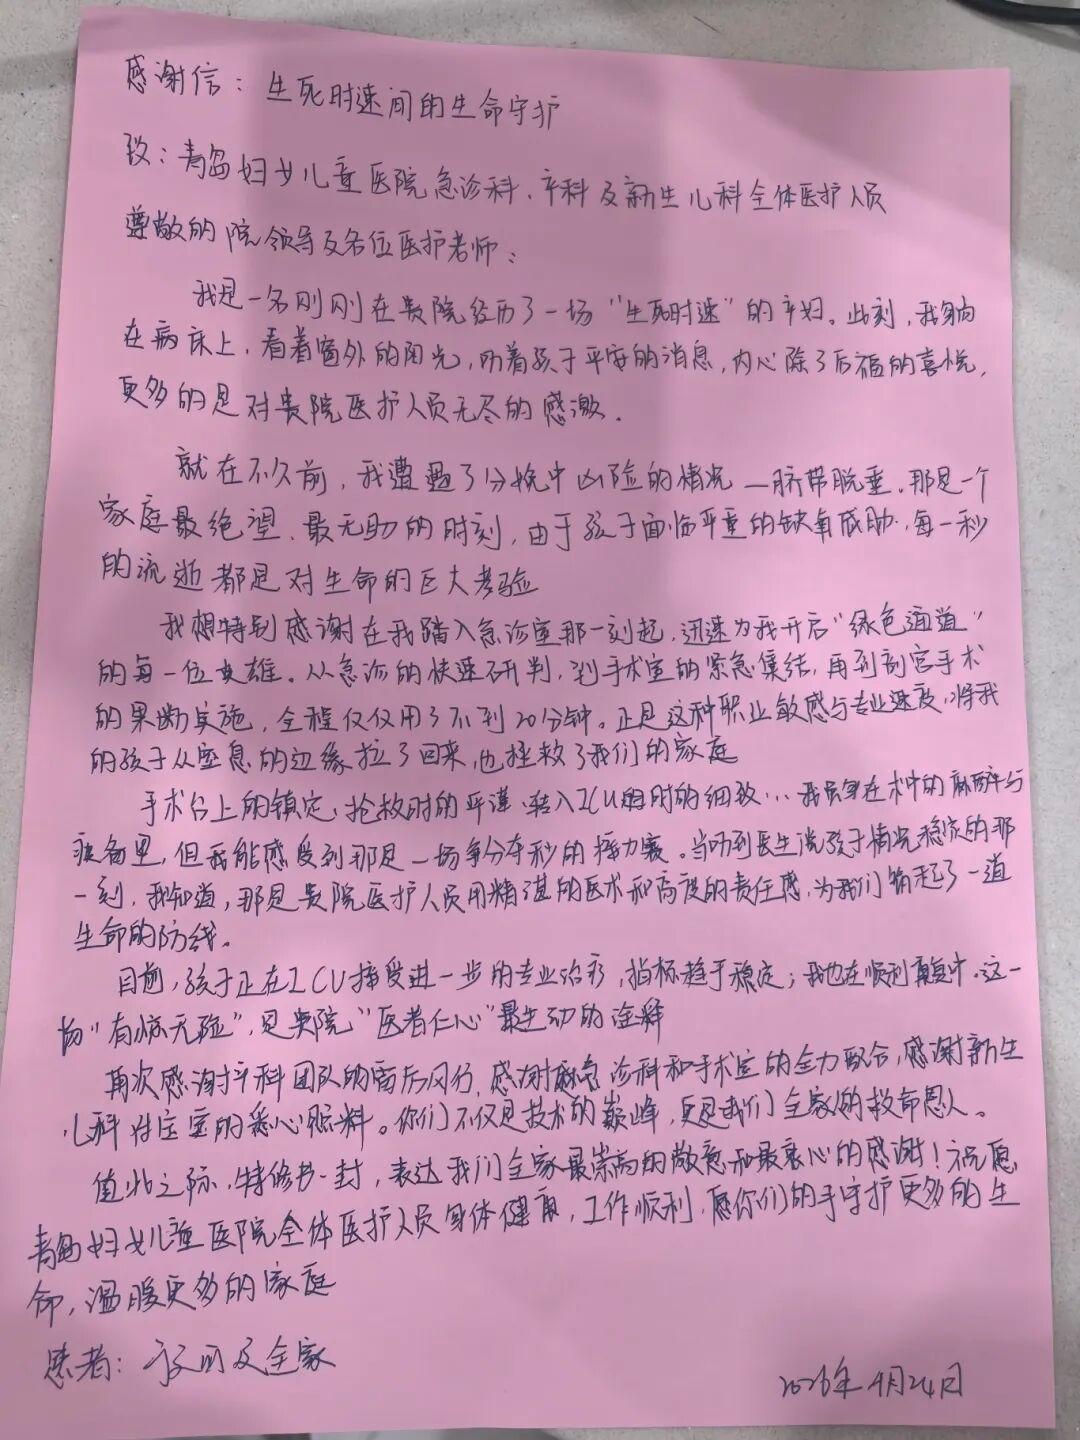 感谢信：生死时速间的生命守护
致：青岛妇女儿童医院急诊科、产科及新生儿科全体医护人员
尊敬的院领导及各位医护老师：
我是一名刚刚在贵院经历了一场“生死时速”的产妇。此刻，我躺
在病床上，看着窗外的阳光，听着孩子平安的消息，内心除了后福的喜悦，
更多的是对贵院医护人员无尽的感激．
就在不久前，我遭遇了分娩中凶险的情况—脐带脱垂．那是一个
家庭最绝望、最无助的时刻，由于孩子面临严重的缺氧威胁，每一秒
的流逝都是对生命的巨大考验
我想特别感谢在我踏入急诊室那一刻起，迅速为我开启“绿色通道”
的每一位英雄。从急诊的快速研判，到手术室的紧急集结，再到剖宫手术
的果断实施，全程仅仅用了不到20分钟。正是这种职业敏感与专业速度，将我
的孩子从窒息的边缘拉了回来，也拯救了我们的家庭
手术台上的镇定、抢救时的严谨、转入ICU时的细致…我虽身在术中的麻醉与
疲备里，但我能感受到那是一场争分夺秒的接力赛。当听到医生说孩子情况稳定的那
一刻，我知道，那是贵院医护人员用精湛的医术和高度的责任感，为我们筑起了一道
生命的防线。
目前，孩子正在ICU接受进一步的专业治疗，指标趋于稳定；我也在顺利康复中．这一
场“有惊无险”，是贵院“医者仁心”最生动的诠释
再次感谢产科团队的雷厉风行，感谢急诊科和手术室的全力配合，感谢新生
儿科对宝宝的悉心照料。你们不仅是技术的巅峰，更是我们全家的救命恩人。
值此之际，特修书一封，表达我们全家最崇高的敬意和最衷心的感谢！祝愿
青岛妇女儿童医院全体医护人员身体健康，工作顺利，愿你们的手守护更多的生
命，温暖更多的家庭
患者：及全家
2026年4月24日